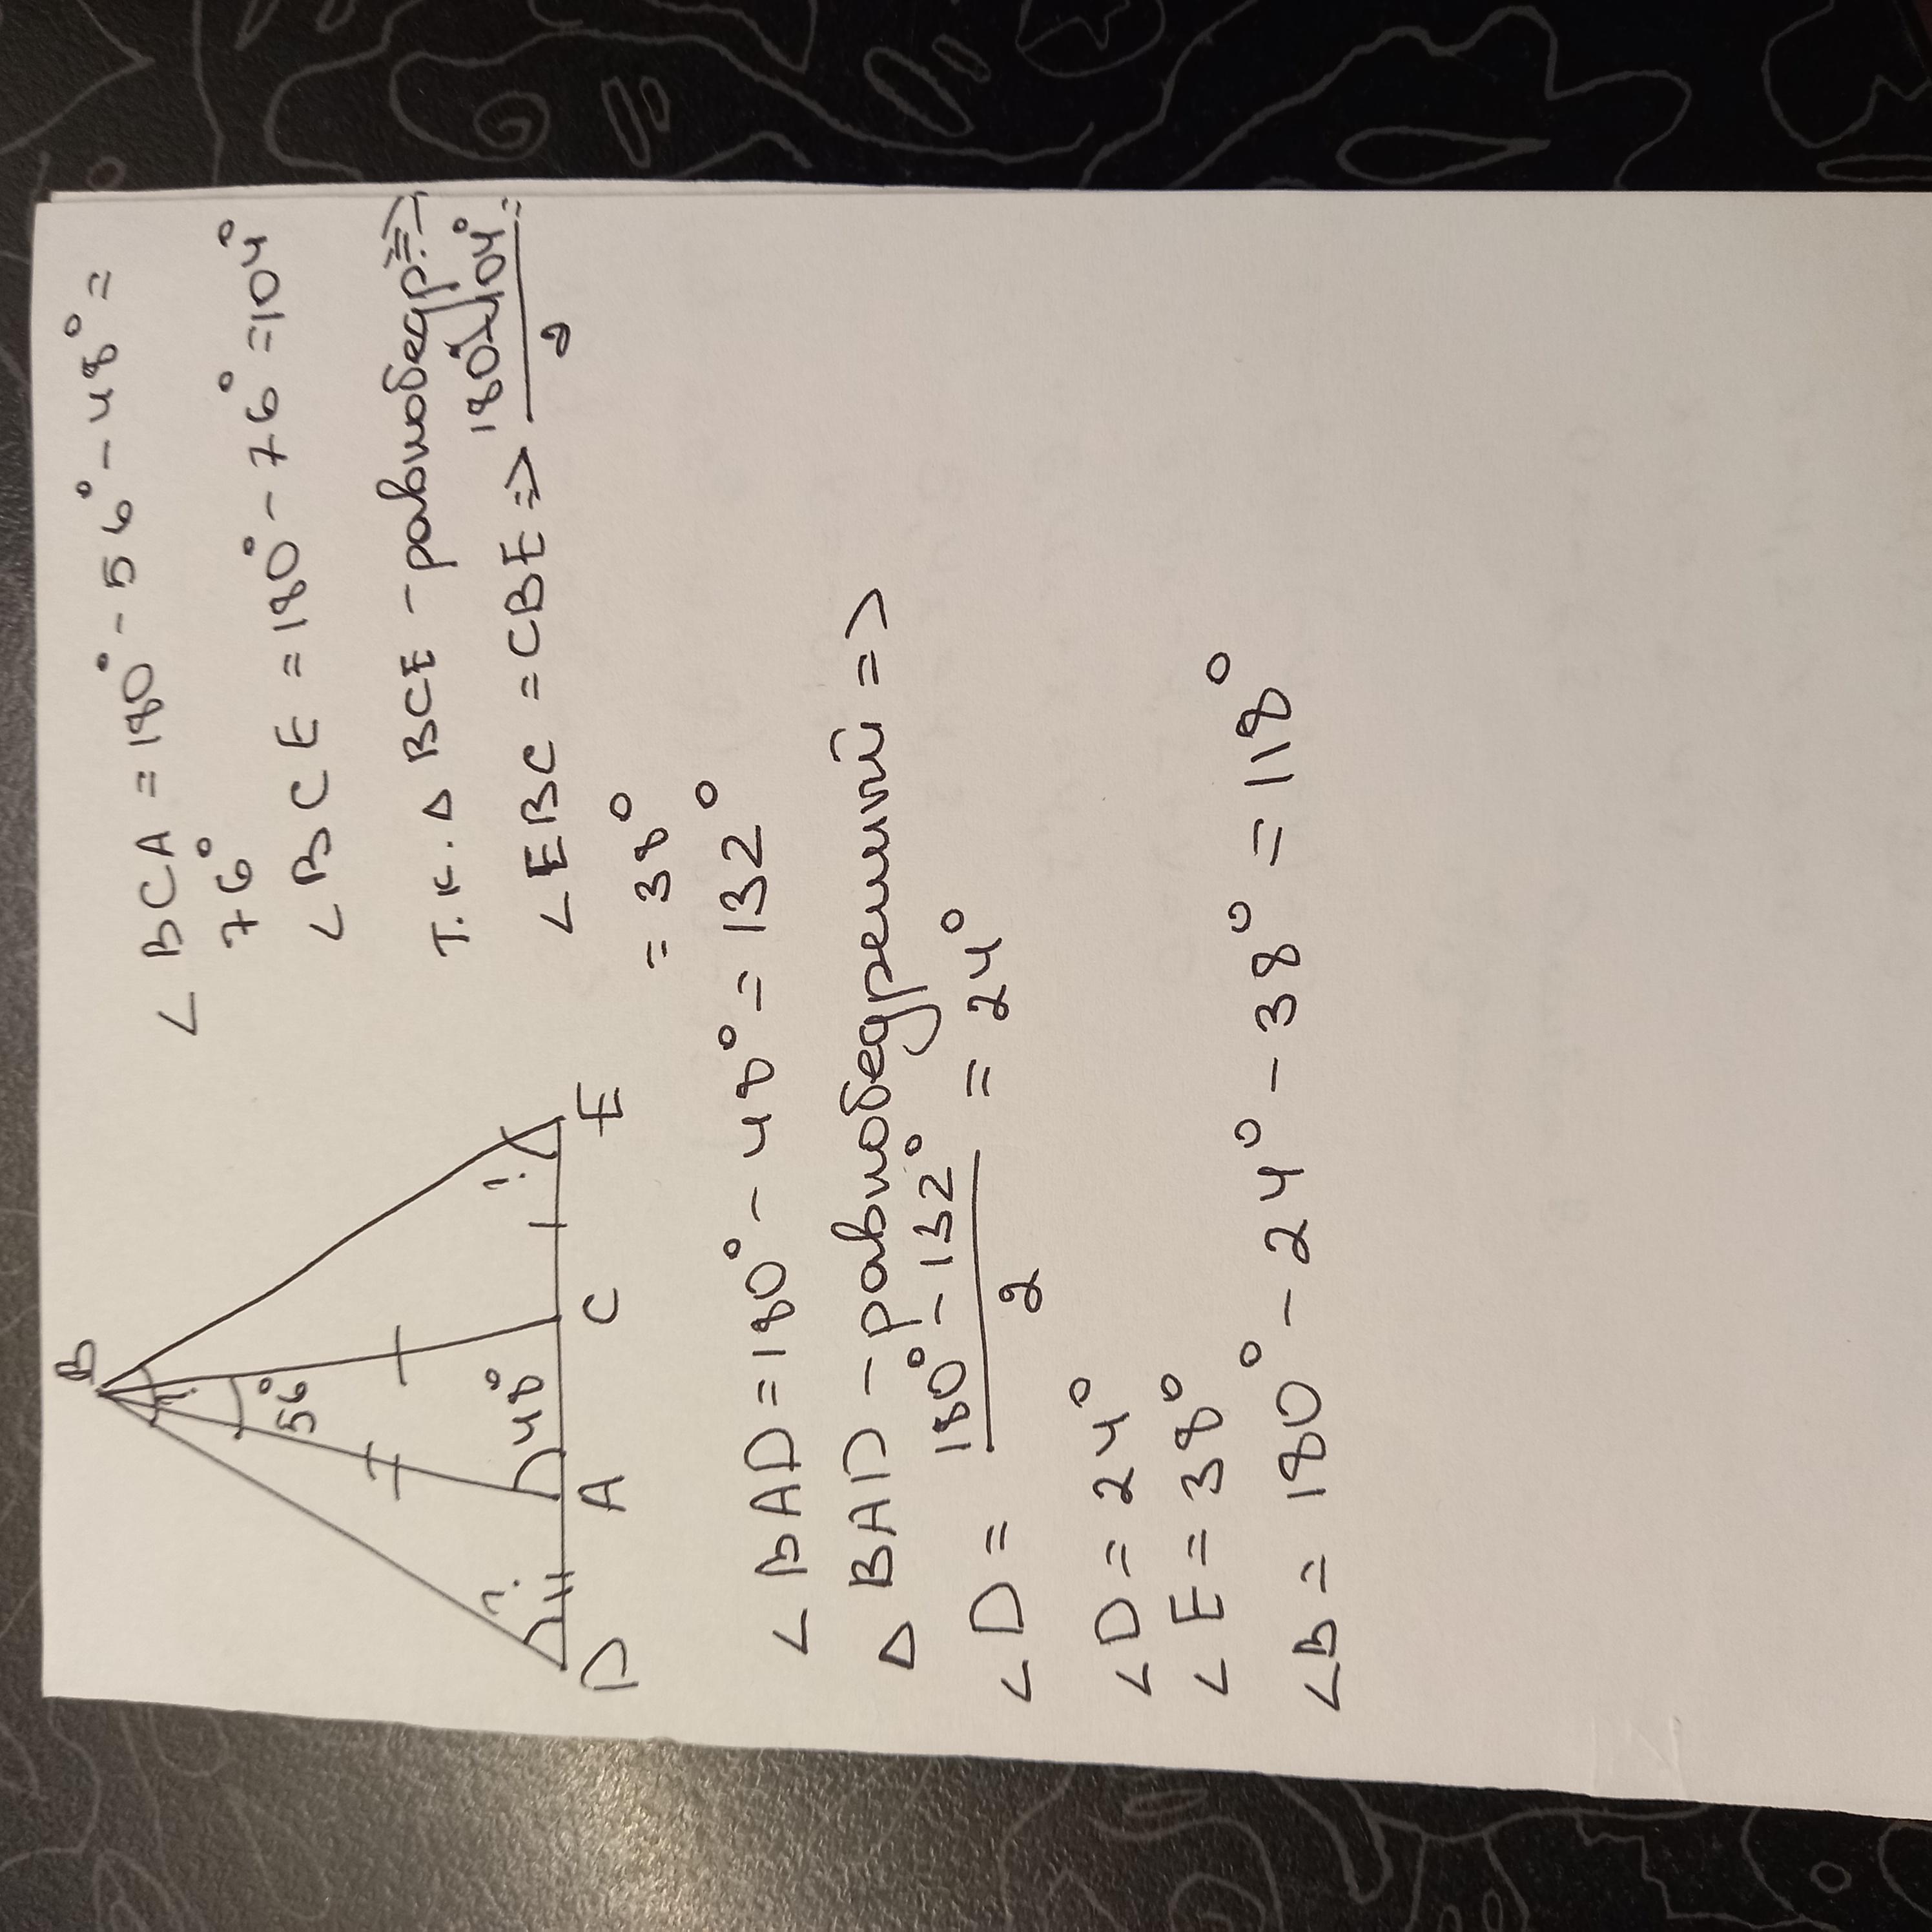 B
56°
48°
?
?
?
D
A
C
E
∠ BCA = 180° - 56° - 48° =
76°
∠ BCE = 180° - 76° = 104°
т.к. △ BCE - равнобедр. =>
∠ EBC = CBE => 180° - 104° =
2
= 38°
∠ BAD = 180° - 48° = 132°
△ BAD - равнобедренный =>
∠ D = 180° - 132° = 24°
2
∠ D = 24°
∠ E = 38°
∠B = 180° - 24° - 38° = 118°